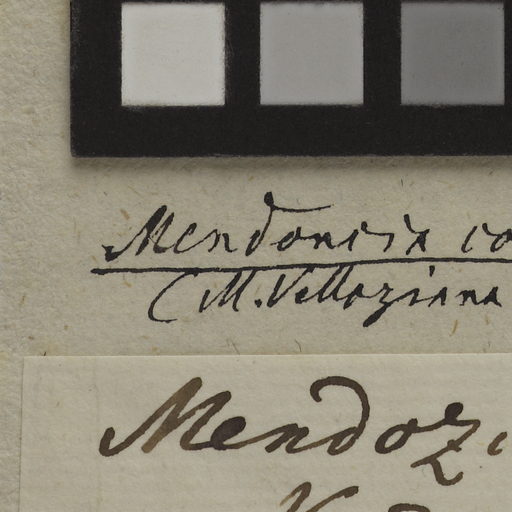 Mendoncia co
(M. Velloziana
Mendozi